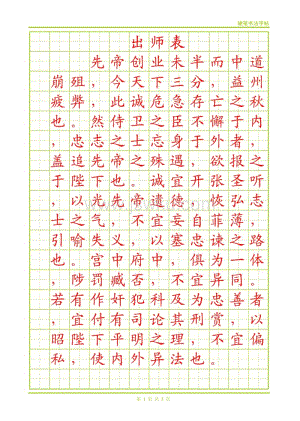 硬笔书法字帖
出师表
先帝创业未半而中道
崩殂，今天下三分，益州
疲弊，此诚危急存亡之秋
也。然侍卫之臣不懈于内，
忠志之士忘身于外者，
盖追先帝之殊遇，欲报之
于陛下也。诚宜开张圣听
，以光先帝遗德，恢弘志
士之气，不宜妄自菲薄，
引喻失义，以塞忠谏之路
也。宫中府中，俱为一体
，陟罚臧否，不宜异同。
若有作奸犯科及为忠善者
，宜付有司论其刑赏，以
昭陛下平明之理，不宜偏
私，使内外异法也。